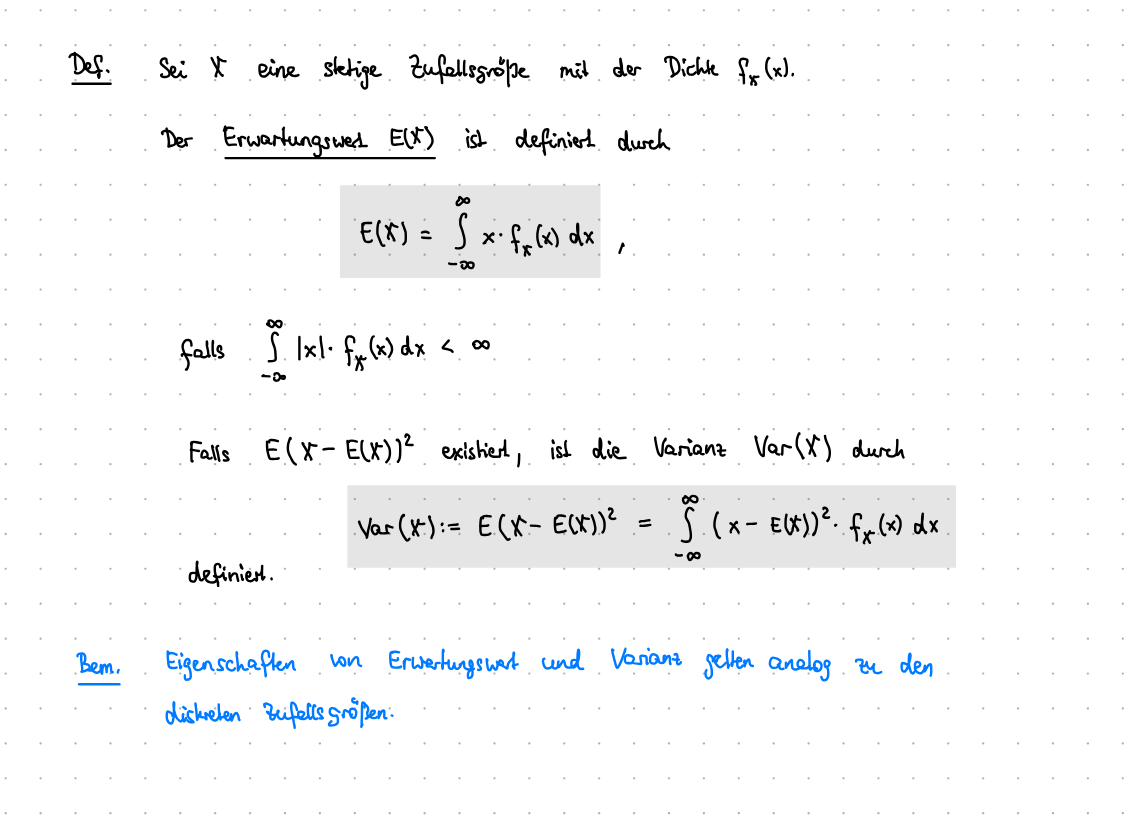 Def. Sei X eine stetige Zufallsgröße mit der Dichte f_X(x).
Der Erwartungswert E(X) ist definiert durch
E(X) = ∫_{-∞}^{∞} x · f_X(x) dx ,
falls ∫_{-∞}^{∞} |x| · f_X(x) dx < ∞
Falls E(X - E(X))² existiert, ist die Varianz Var(X) durch
Var(X) := E(X - E(X))² = ∫_{-∞}^{∞} (x - E(X))² · f_X(x) dx
definiert.
Bem. Eigenschaften von Erwartungswert und Varianz gelten analog zu den
diskreten Zufallsgrößen.